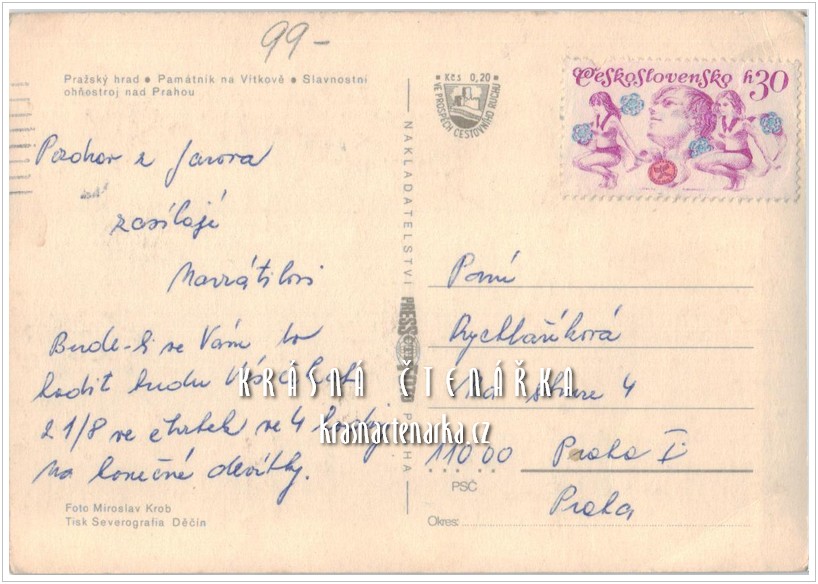 99-
Pražský hrad ● Památník na Vítkově ● Slavnostní
ohňostroj nad Prahou
Pozdrav z Javora
zasílají
Navrátilovi
Bude-li se Vám to
hodit budu Vás čekat
21/8 ve čtvrtek ve 4 hodiny
na konečné devítky.
Foto Miroslav Krob
Tisk Severografia Děčín
Kčs 0,20
VE PROSPĚCH CESTOVNÍHO RUCHU
NAKLADATELSTVÍ PRESSFOTO PRAHA
Československo h30
Paní
Rychlaříková
Na struze 4
110 00 Praha I
PSČ
Praha
Okres:
KRÁSNÁ ČTENÁŘKA
krasnactenarka.cz